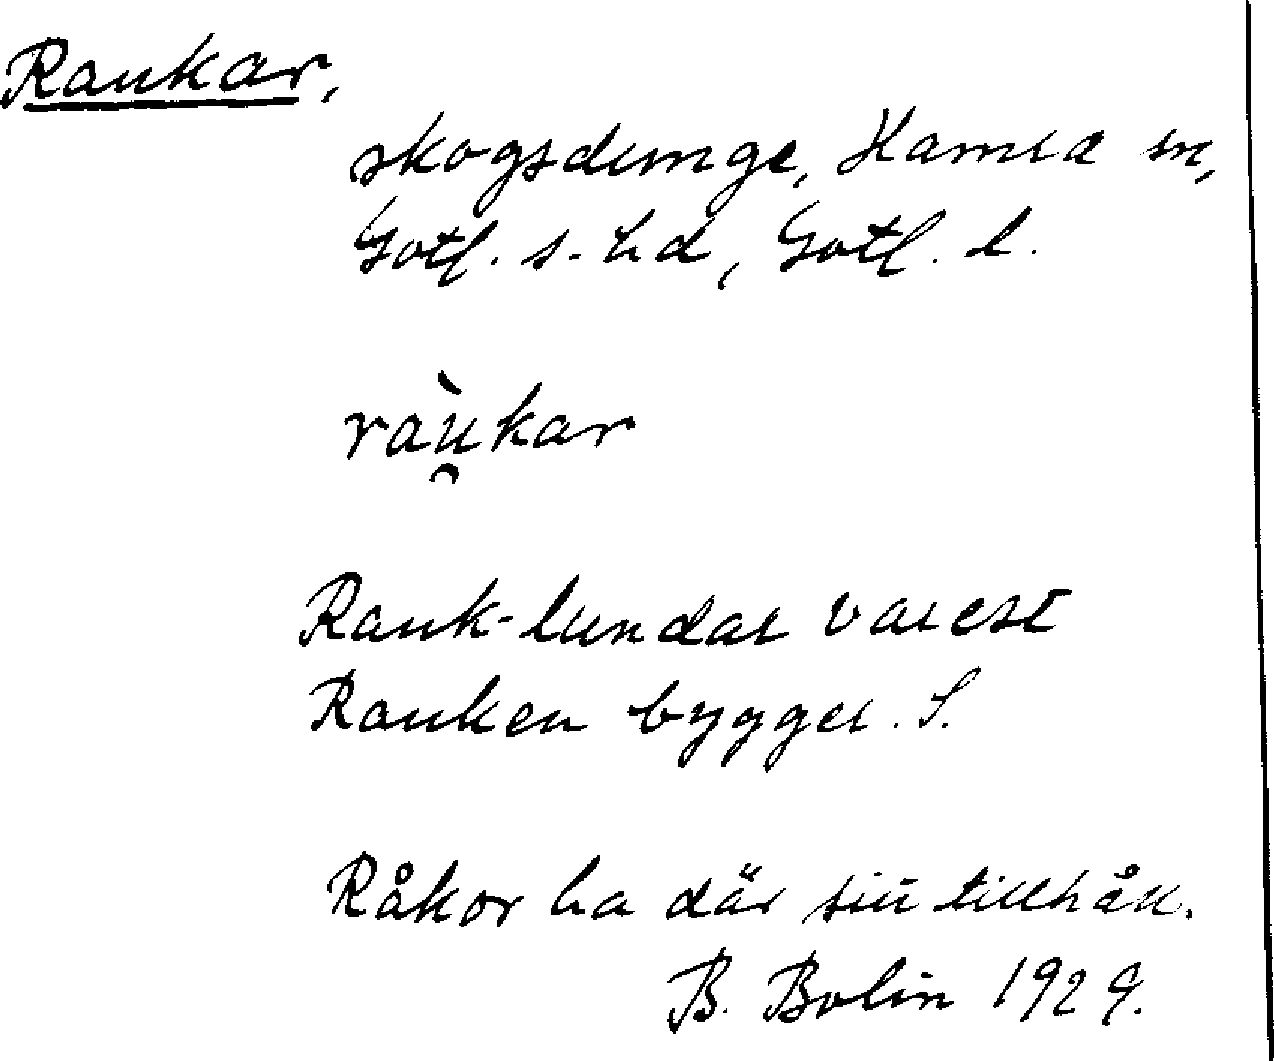 Raukar,
skogsdunge, Hamra sn,
Gotl. s. hd, Gotl. l.
ràu̯kar
Rauk-lundar varest
Rauken bygger. S.
Råkor ha där sitt tillhåll.
B. Bolin 1929.